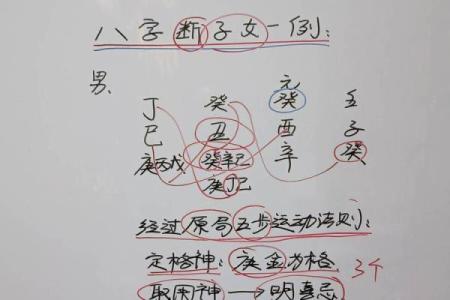 八字断子女一例：
男、
元
丁 癸 癸 壬
巳 丑 酉 子
庚丙戊 癸辛己 辛 癸
庚丁己
经过原局五步运动法则：
定格神：庚金为格 3个
取用神→明喜忌